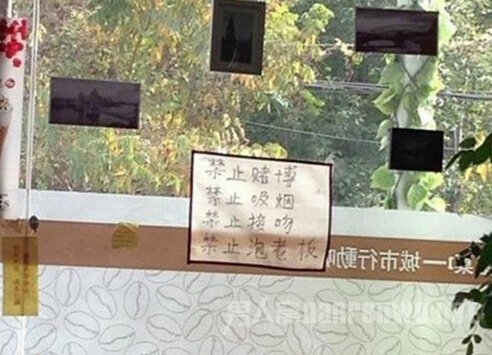 禁止赌博
禁止吸烟
禁止接吻
禁止泡老板
城市行動